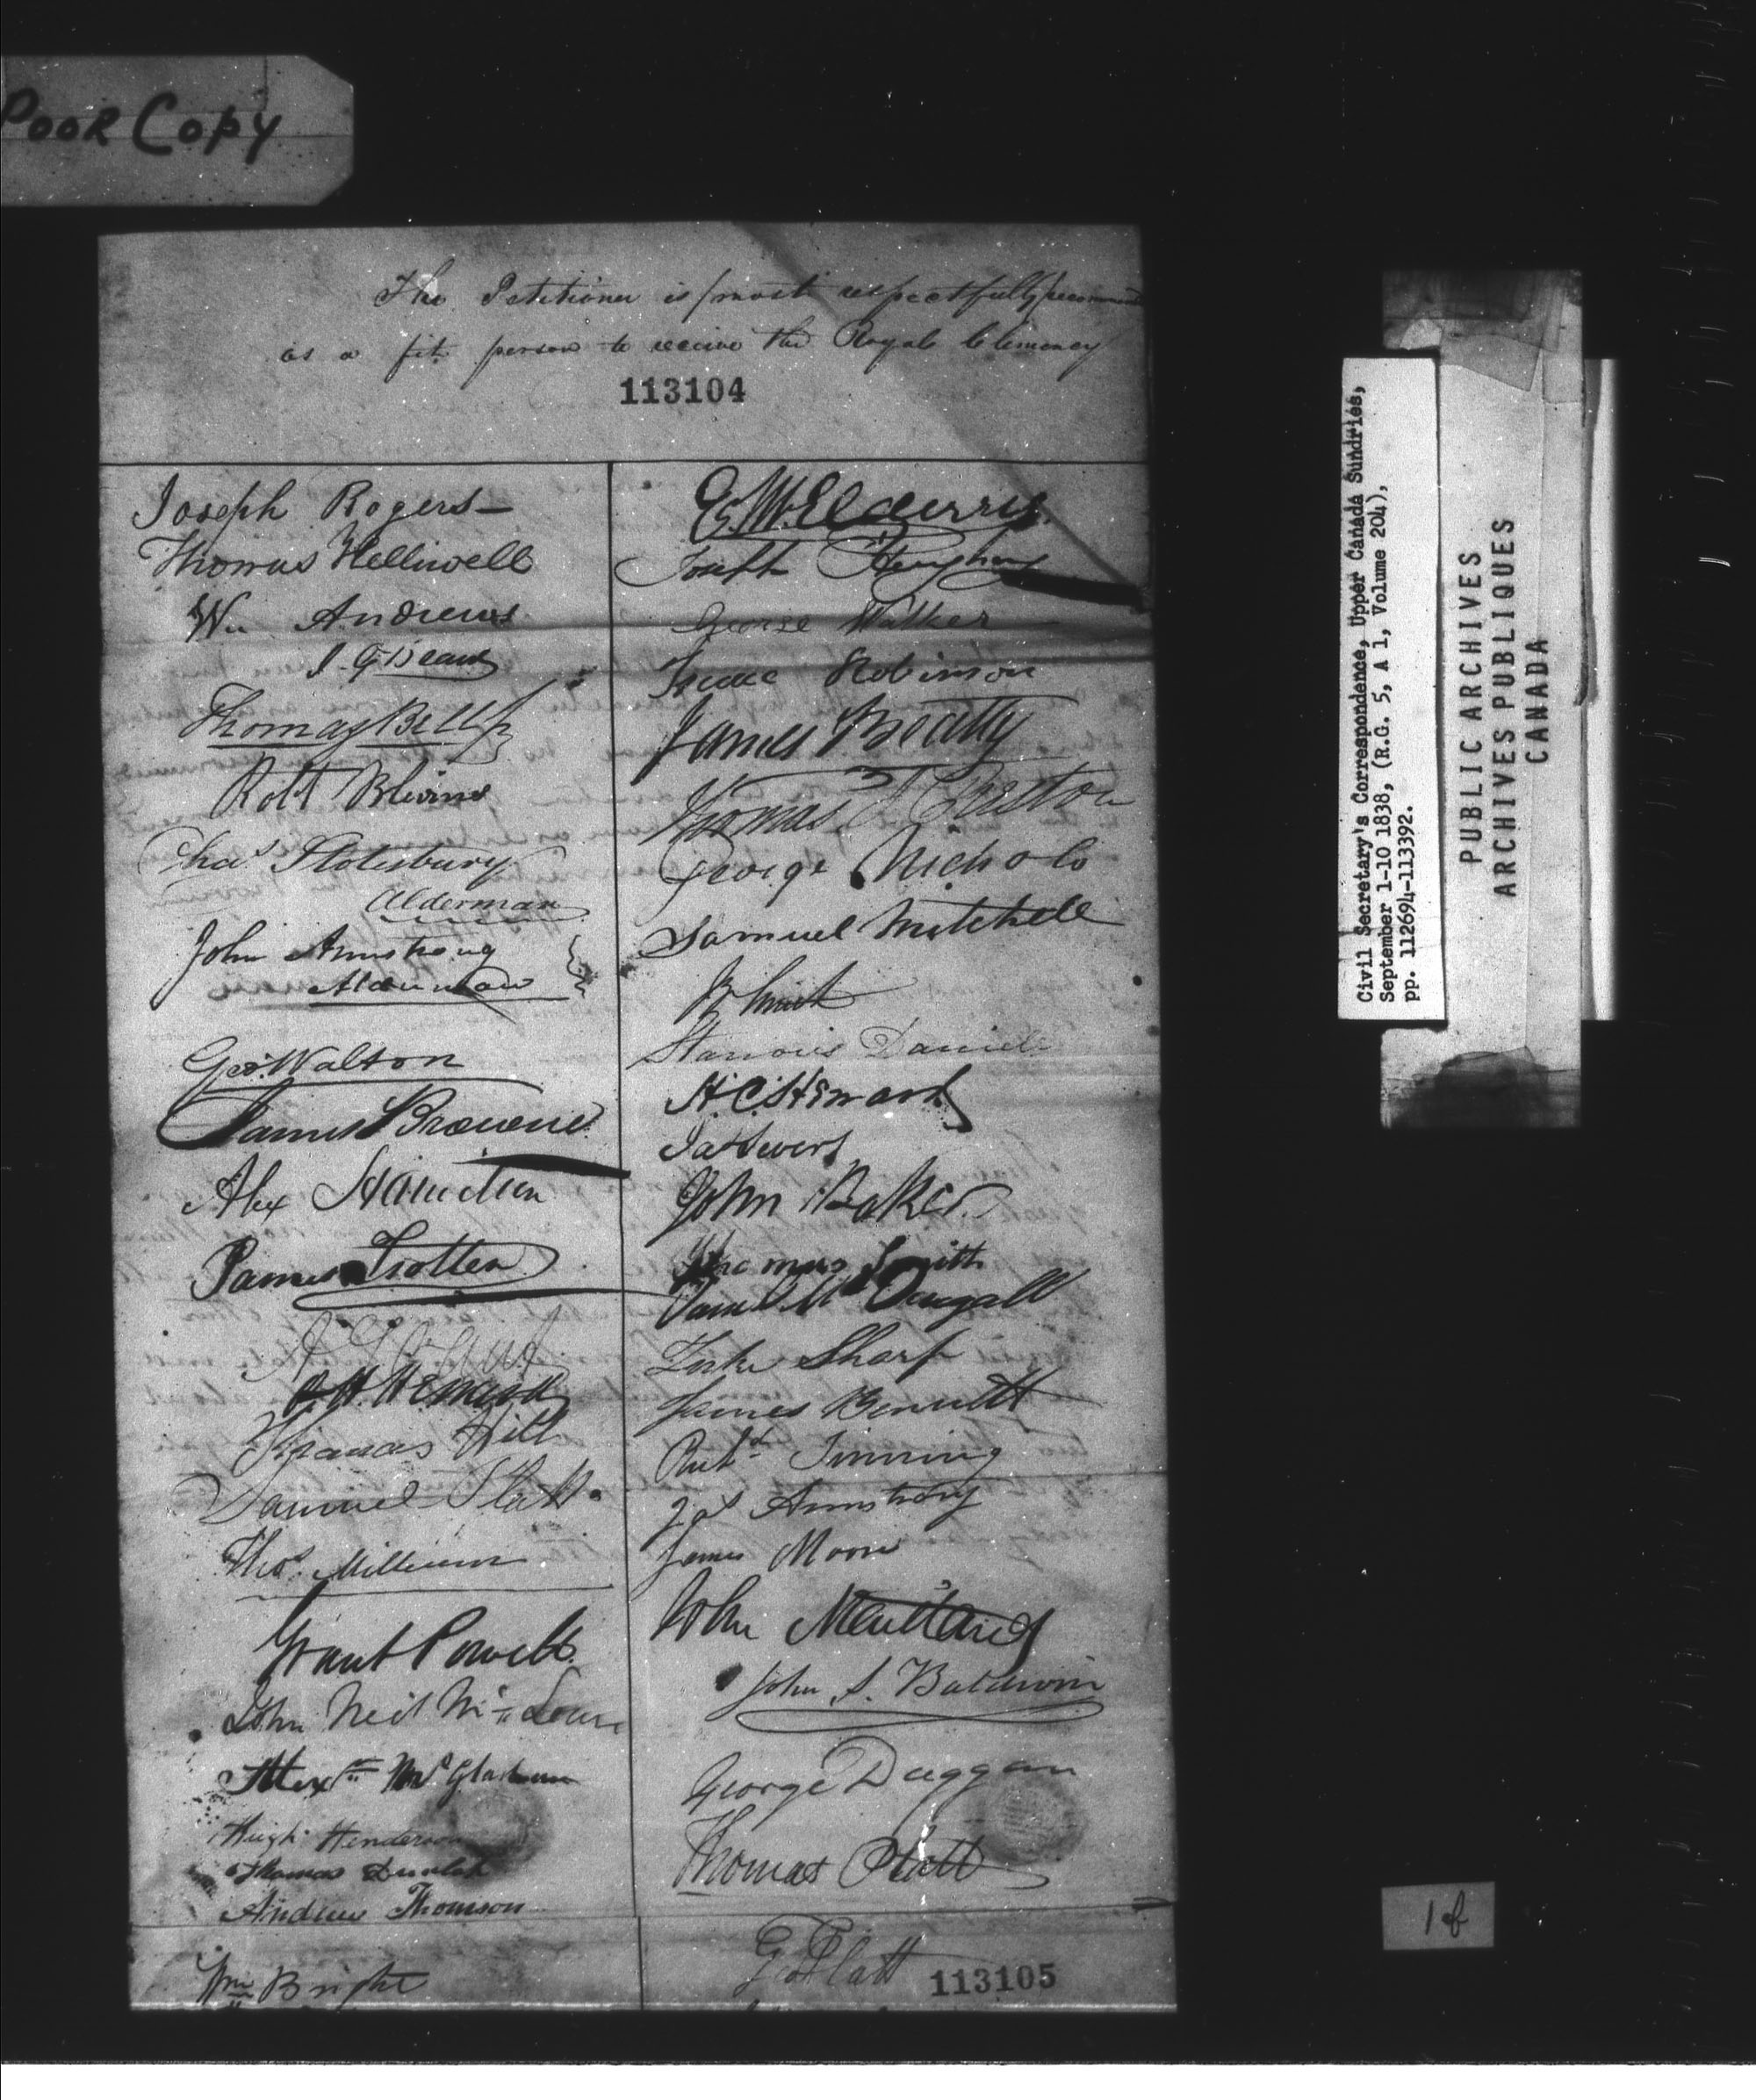 Poor Copy
The Petitioner is most respectfully recommend
as a fit person to receive the Royal Clemency
113104
Joseph Rogers
Thomas Helliwell
Wm Andrews
J. G. Beard
Thomas Bell
Robt Blevins
Chas Stotesbury
Alderman
John Armstrong
Alderman
Geo. Walton
James Browne
Alex Hamilton
James Trotter
Francis Hill
Samuel Platt
Thos. Milburn
Grant Powell
John Neil
Alexr McGlashan
Hugh Henderson
Thomas Dunlop
Andrew Thomson
Wm Bright
Joseph
George Walker
Isaac Robinson
James Beatty
Thomas J Preston
George Nichols
Samuel Mitchell
Daniel
John Baker
Thomas Smith
McDougall
Luke Sharp
James Bennett
Richd Tinning
Jas Armstrong
James Moore
John Maitland
John S. Baldwin
George Duggan
Thomas Platt
Geo Platt
113105
Civil Secretary's Correspondence, Upper Canada Sundries,
September 1-10 1838, (R.G. 5, A 1, Volume 204),
pp. 112694-113392.
PUBLIC ARCHIVES
ARCHIVES PUBLIQUES
CANADA